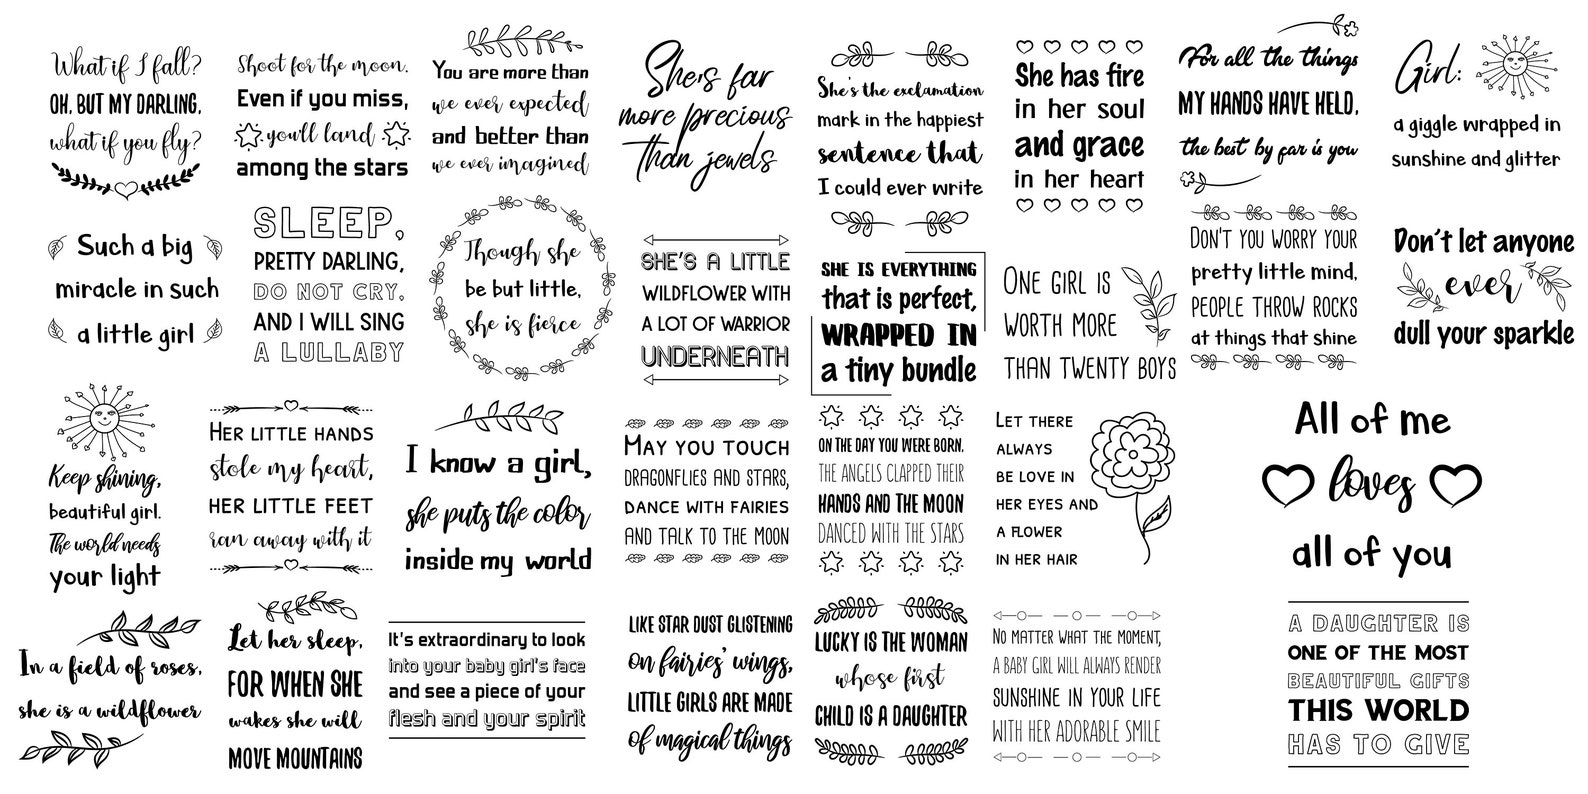 What if I fall?
OH, BUT MY DARLING,
what if you fly?
Shoot for the moon.
Even if you miss,
you'll land
among the stars
You are more than
we ever expected
and better than
we ever imagined
She's far
more precious
than jewels
She's the exclamation
mark in the happiest
sentence that
I could ever write
She has fire
in her soul
and grace
in her heart
For all the things
MY HANDS HAVE HELD,
the best by far is you
Girl:
a giggle wrapped in
sunshine and glitter
Such a big
miracle in such
a little girl
SLEEP,
PRETTY DARLING,
DO NOT CRY,
AND I WILL SING
A LULLABY
Though she
be but little,
she is fierce
SHE'S A LITTLE
WILDFLOWER WITH
A LOT OF WARRIOR
UNDERNEATH
SHE IS EVERYTHING
that is perfect,
WRAPPED IN
a tiny bundle
ONE GIRL IS
WORTH MORE
THAN TWENTY BOYS
DON'T YOU WORRY YOUR
pretty little mind,
PEOPLE THROW ROCKS
at things that shine
Don't let anyone
ever
dull your sparkle
Keep shining,
beautiful girl.
The world needs
your light
HER LITTLE HANDS
stole my heart,
HER LITTLE FEET
ran away with it
I know a girl,
she puts the color
inside my world
MAY YOU TOUCH
DRAGONFLIES AND STARS,
DANCE WITH FAIRIES
AND TALK TO THE MOON
ON THE DAY YOU WERE BORN,
THE ANGELS CLAPPED THEIR
HANDS AND THE MOON
DANCED WITH THE STARS
LET THERE
ALWAYS
BE LOVE IN
HER EYES AND
A FLOWER
IN HER HAIR
All of me
loves
all of you
In a field of roses,
she is a wildflower
Let her sleep,
FOR WHEN SHE
wakes she will
MOVE MOUNTAINS
It's extraordinary to look
into your baby girl's face
and see a piece of your
flesh and your spirit
LIKE STAR DUST GLISTENING
on fairies' wings,
LITTLE GIRLS ARE MADE
of magical things
LUCKY IS THE WOMAN
whose first
CHILD IS A DAUGHTER
NO MATTER WHAT THE MOMENT,
A BABY GIRL WILL ALWAYS RENDER
SUNSHINE IN YOUR LIFE
WITH HER ADORABLE SMILE
A DAUGHTER IS
ONE OF THE MOST
BEAUTIFUL GIFTS
THIS WORLD
HAS TO GIVE